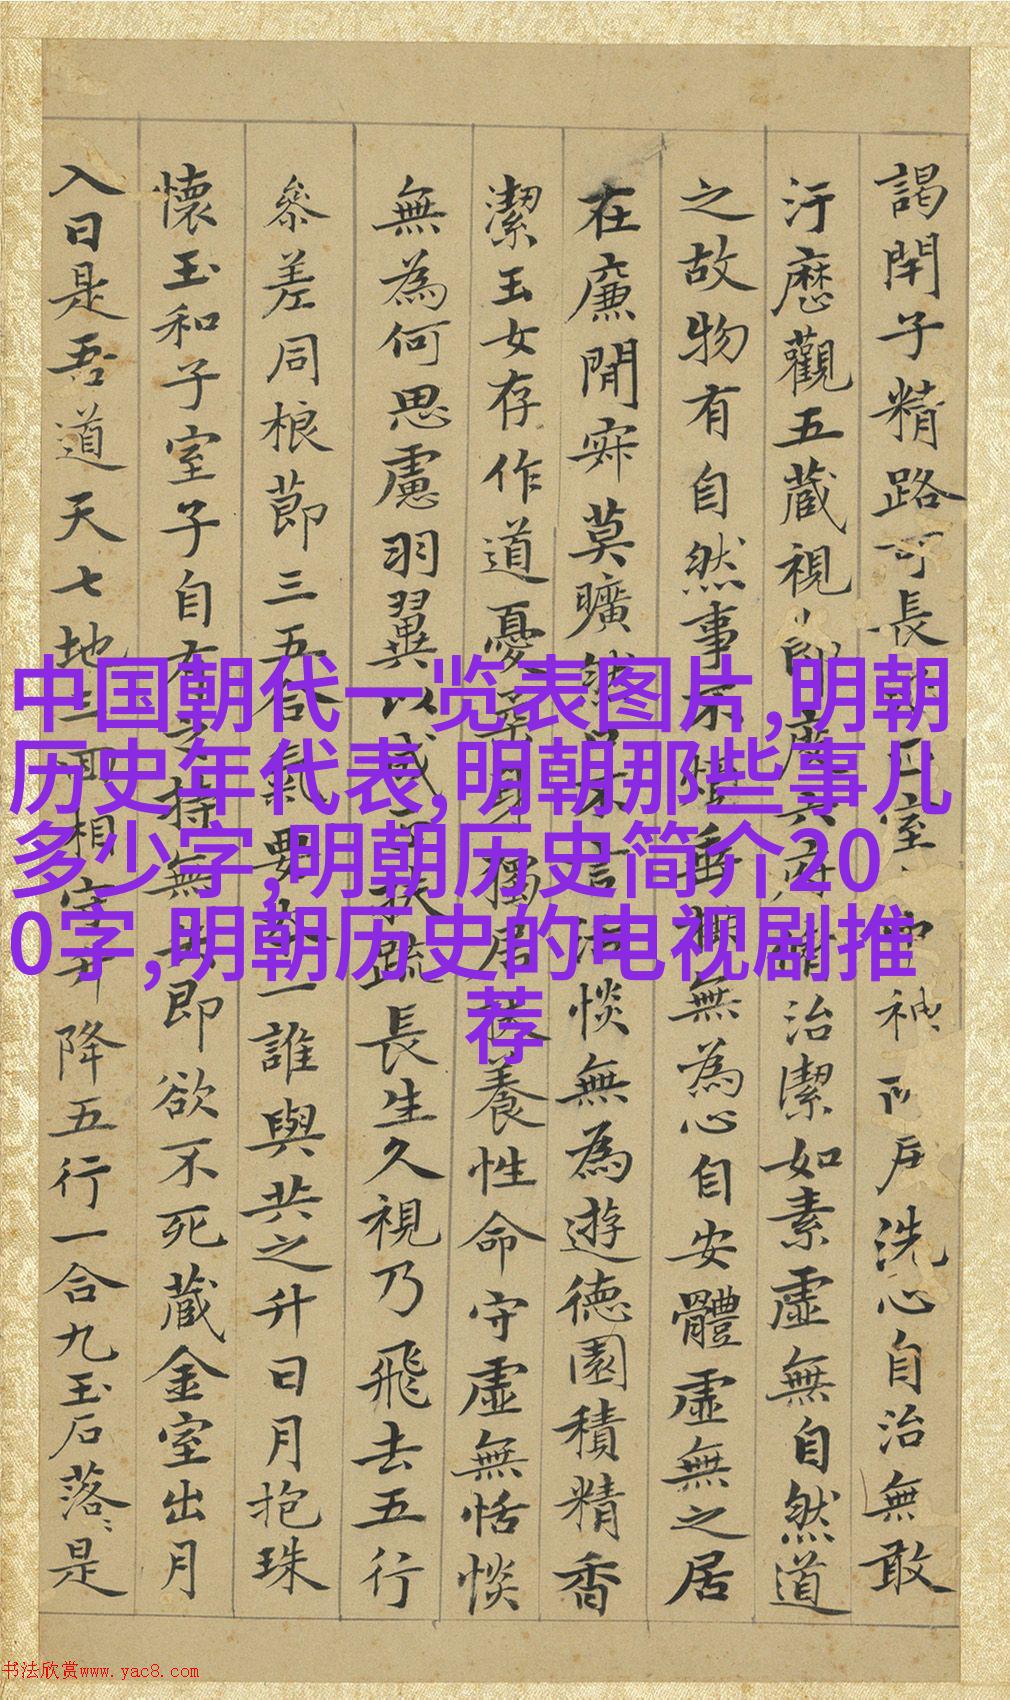 謁閇子精路可長室神户洗心自治無敢
汙歷觀五藏視節度六府脩治潔如素虛無自然道
之故物有自然事不煩垂拱無為心自安體虛無之居
在廉間寂莫曠然口不言恬惔無為遊德園積精香
潔玉女存作道憂柔身獨居扶養性命守虛無恬惔
無為何思慮羽翼以成正扶疏長生久視乃飛去五行
參差同根節三五合氣要本一誰與共之升日月抱珠
懷玉和子室子自有之持無失即欲不死藏金室出月
入日是吾道天七地三回相守升降五行一合九玉石落〻是
中国朝代一览表图片,明朝
历史年代表,明朝那些事儿
多少字,明朝历史简介20
0字,明朝历史的电视剧推
荐
书法欣赏www.yac8.com